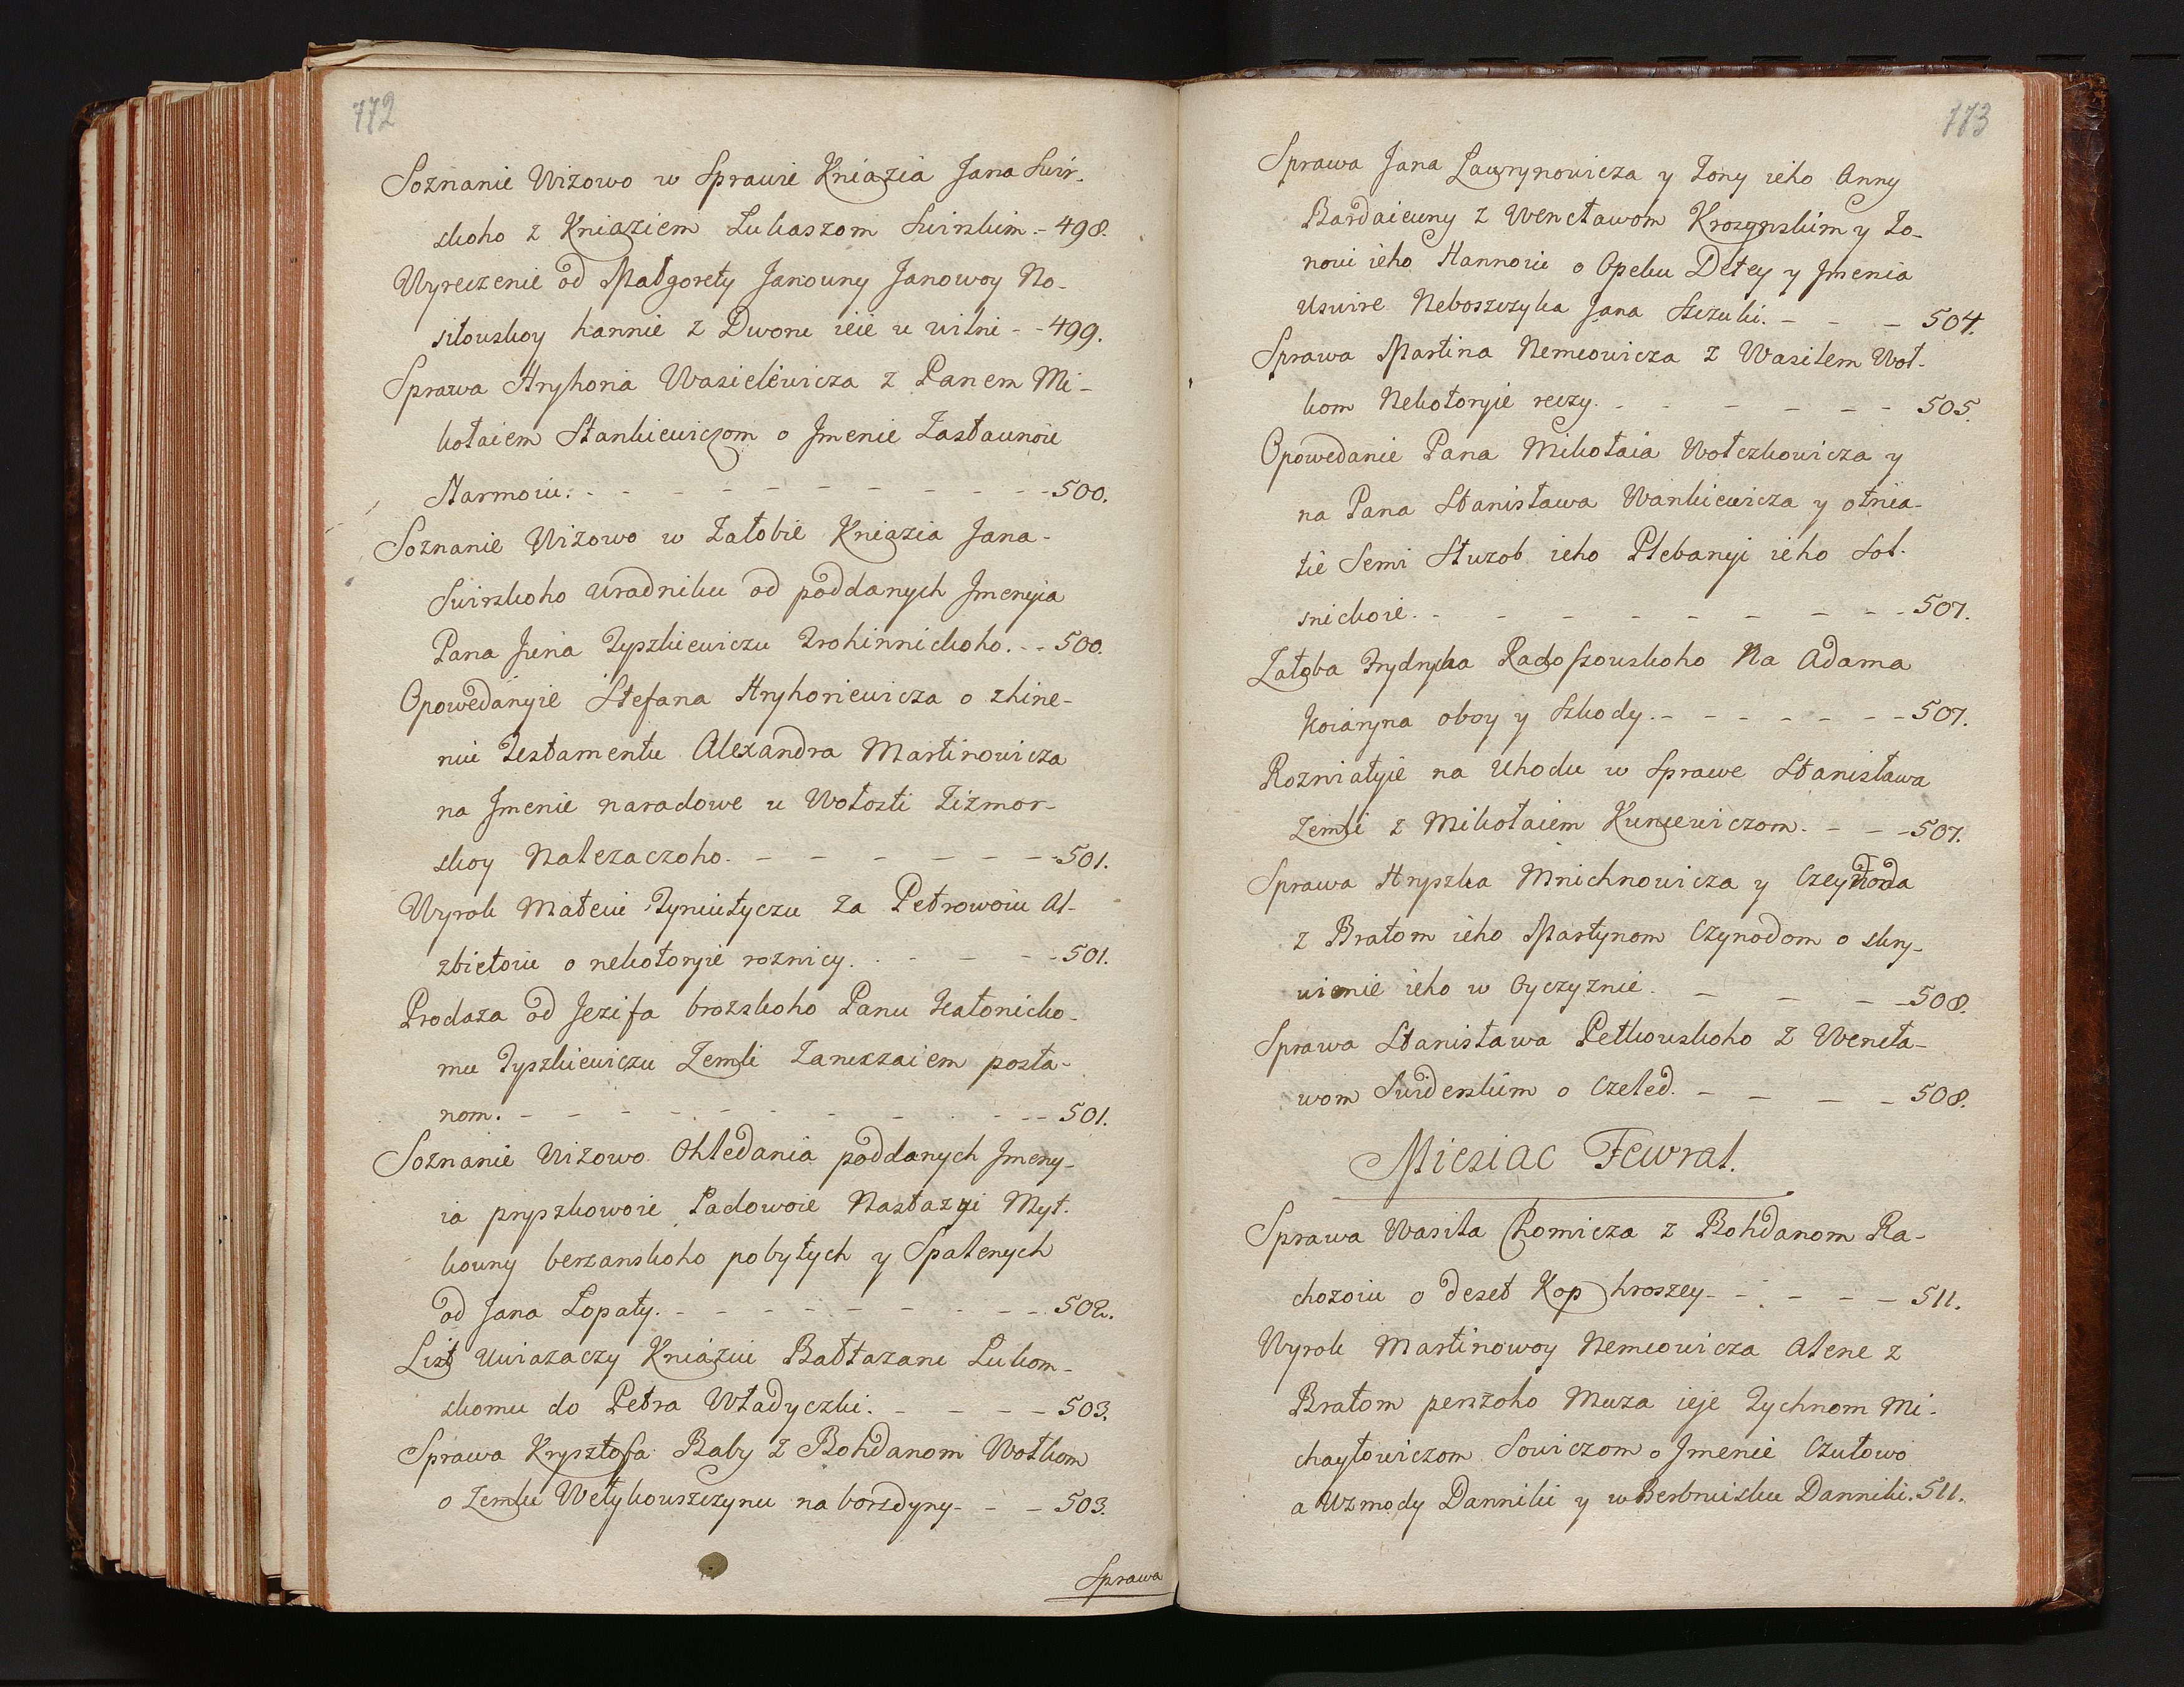 772
Soznanie Wizowo w Sprawie Kniazia Jana Swir-
skoho z Kniaziem Łukaszom Swirskim.- 498.
Wyreczenie od Małgorety Janowny Janowoy No-
siłowskoy hannie z Dworu ieie u wilni - - 499.
Sprawa Hryhoria Wasielewicza z Panem Mi-
kołaiem Stankiewiczom o Jmenie Zastawnoie
Narmoiu. - - - - - - - - - 500.
Soznanie Wizowo w Załobie Kniazia Jana-
Swirskoho uradniku od poddanych Jmenyia
Pana Juria Tyszkiewiczu Trohinnickoho. - - 500.
Opowedanyie Stefana Hryhoriewicza o zhine-
niu Testamentu Alexandra Martinowicza
na Jmenie naradowe u Wołosti Zizmor-
skoy Nalezaczoho. - - - - - - - 501.
Wyrok Mateiu Tyniutyczu za Petrowoiu Al-
zbietoiu o nekotoryie roznicy. - - - - 501.
Prodaza od Jezifa brozskoho Panu Katonicko-
mu Tyszkiewiczu Zemli Zanikzaiem posta-
nom. - - - - - - - - - - 501.
Soznanie Wizowo Ohledania poddanych Jmeny-
ia pryszkowoie Padowoie Nastazyi Myt.
kowny berzanskoho pobytych y Spalenych
od Jana Łopaty. - - - - - - - - - 502.
List Uwiazaczy Kniaziu Bałtazaru Łukom-
skomu do Petra Władyczki. - - - - - 503.
Sprawa Krysztofa Baby z Bohdanom Wołkom
o Zemlu Wełykowszczynu na borsdyny - - - 503.
Sprawa
773
Sprawa Jana Ławrynowicza y Zony ieho Anny
Bardaiewny z Wencławom Krosynskim y Zo-
nowi ieho Hannoiu o Opeku Detey y Jmenia
Uswire Neboszczyka Jana Sczuki. - - - 504.
Sprawa Martina Nemcowicza z Wasilem Woł-
kom Nekotoryie reczy. - - - - - - 505.
Opowedanie Pana Mikołaia Wołczkowicza y
na Pana Stanisława Wankiewicza y otnia-
tie Semi Słuzob ieho Plebanyi ieho Sol-
snickoie. - - - - - - - - - 507.
Załoba Frydryka Radoszowskoho Na Adama
Koiaryna oboy y Szkody. - - - - - - - 507.
Rozniatyie na Uhodu w Sprawe Stanisława
Zemli z Mikołaiem Kuncewiczom. - - - 507.
Sprawa Hryszka Mnichnowicza y Czeynoda
z Bratom ieho Martynom Czynodom o skry-
wienie ieho w Oyczyznie. - - - - 508.
Sprawa Stanisława Petkowskoho z Wencła-
wom Swiderskim o Czeled. - - - - 508.
Miesiac Fewral.
Sprawa Wasila Chomicza z Bohdanom Ra-
chozoiu o deset Kop hroszey - - - - - 511.
Wyrok Martinowoy Nemcowicza Alene z
Bratom perszoho Muza ieje Tychnom Mi-
chayłowiczom Sowiczom o Jmenie Czutowo
a Uzmody Danniki y w Berbruisku Danniki. 511.